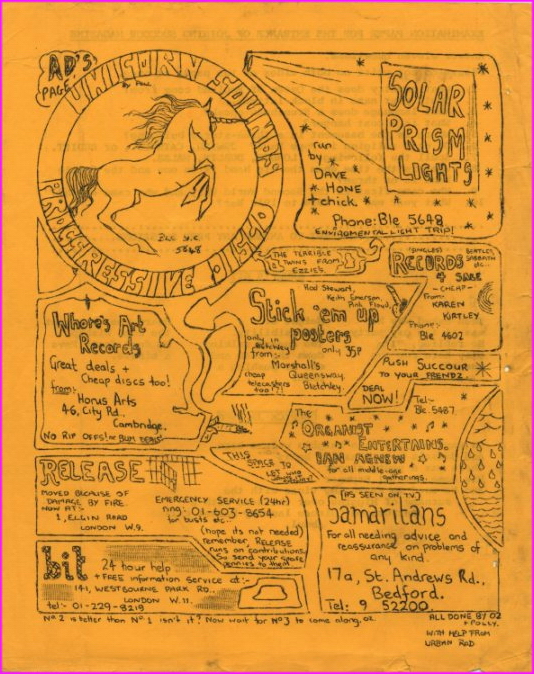 AD'S
PAGE
By Paul
UNICORN SOUNDS
PROGRESSIVE DISCO
Ble
5648
SOLAR
PRISM
LIGHTS
run
by
DAVE
HONE
+ chick.
Phone: Ble 5648
ENVIROMENTAL LIGHT TRIP!
THE TERRIBLE
TWINS FROM
EZZIES.
"SINGLES"
BEATLES,
SABBATH
etc.
RECORDS
4 SALE
- CHEAP -
From:
KAREN
KIRTLEY
Phone:
Ble 4602
Whore's Art
Records
Great deals +
Cheap discs too!
from:-
Horus Arts
46, City Rd.
Cambridge.
NO RIP OFFS! or BUM DEALS
Rod Stewart,
Keith Emerson,
Pink Floyd,
Stick 'em up
posters
only in
Bletchley
from:-
only 35p
Marshall's
Queensway,
Bletchley.
cheap
telecasters
too!?!
DEAL
NOW!
PUSH SUCCOUR
TO YOUR FRENDZ.
Tel:-
Ble. 5487
The
ORGANIST
ENTERTAINS.
IAN AGNEW
for all middle age
gatherings.
THIS
SPACE TO
LET
RELEASE
MOVED BECAUSE OF
DAMAGE BY FIRE
NOW AT:-
1, ELGIN ROAD
LONDON W.9.
EMERGENCY SERVICE (24hr)
ring: 01-603-8654
for busts etc.
(hope its not needed)
Remember, RELEASE
runs on contributions
So send your spare
pennies to them
bit
24 hour help
+ FREE information Service at:-
141, WESTBOURNE PARK RD.
LONDON W.11.
tel:- 01-229-8219
[AS SEEN ON TV]
Samaritans
For all needing advice and
reassurance on problems of
any kind.
17a, St. Andrews Rd.,
Bedford.
Tel: 9 52200
No 2 is better than No 1 isn't it? Now wait for No 3 to come along. OZ.
ALL DONE BY OZ
+ POLLY.
WITH HELP FROM
URBAN RAD